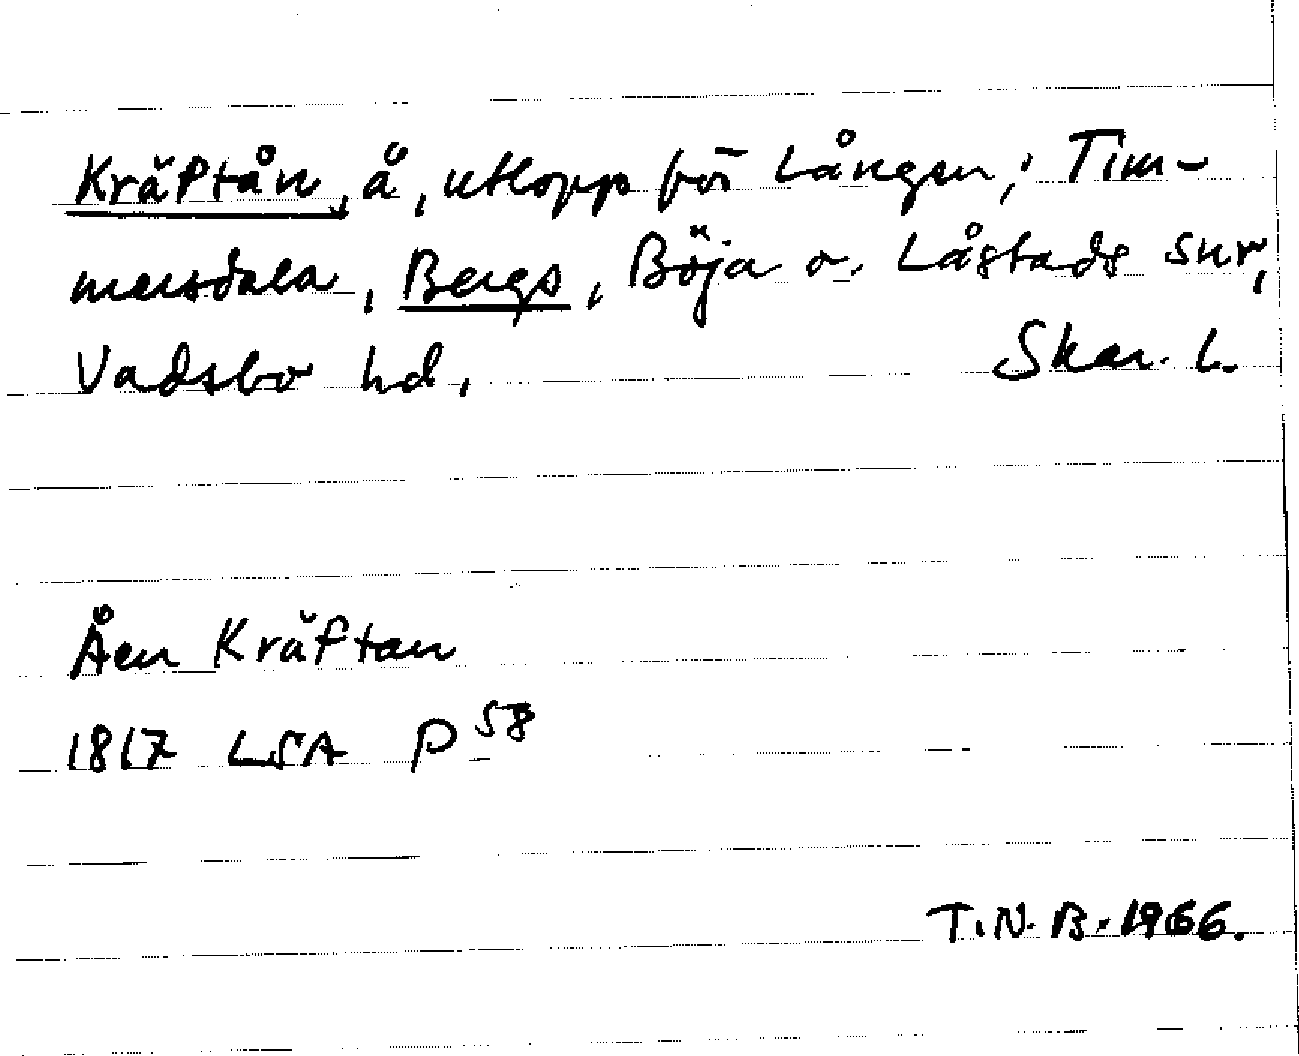 Kräftån, å, utlopp för Lången; Tim-
mersdala, Bergs, Böja o. Låstads snr,
Vadsbo hd, Skar. l.
Åen Kräftan
1817 LSA P 58
T.N.B. 1966.